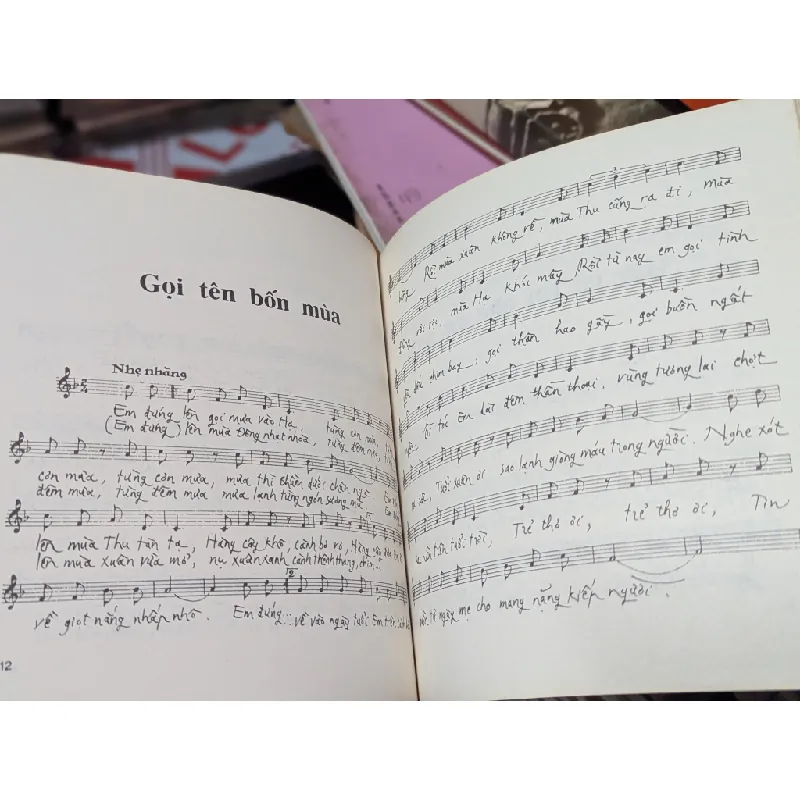 Gọi tên bốn mùa
Nhẹ nhàng
Em đứng lên gọi mưa vào Hạ từng cơn mưa,
(Em đứng) lên mùa Đông nhạt nhòa, từng đêm
cơn mưa, từng cơn mưa, mưa thì thầm dưới chân ngà Em
đêm mưa, từng đêm mưa mưa lạnh từng ngón sương mù Em
lên mùa Thu tàn tạ, Hàng cây khô, cành bơ vơ, Hàng
lên mùa xuân vừa mở, nụ xuân xanh cành thênh thang, chim
về giọt nắng nhấp nhô. Em đứng về vào ngày tuổi Em trên
12
Rồi mùa xuân không về, mùa Thu cũng ra đi, mùa
vời, mùa Hạ khói mây Rồi từ nay em gọi tình
chim bay, gọi thân hao gầy, gọi buồn ngất
Tì trí em dài đêm thần thoại, vùng tương lai chợt
Tuổi xuân ơi sao lạnh giòng máu trong người. Nghe xót
Trẻ thơ ơi, trẻ thơ ơi, Tin
từ ngày mẹ cho mang nặng kiếp người.